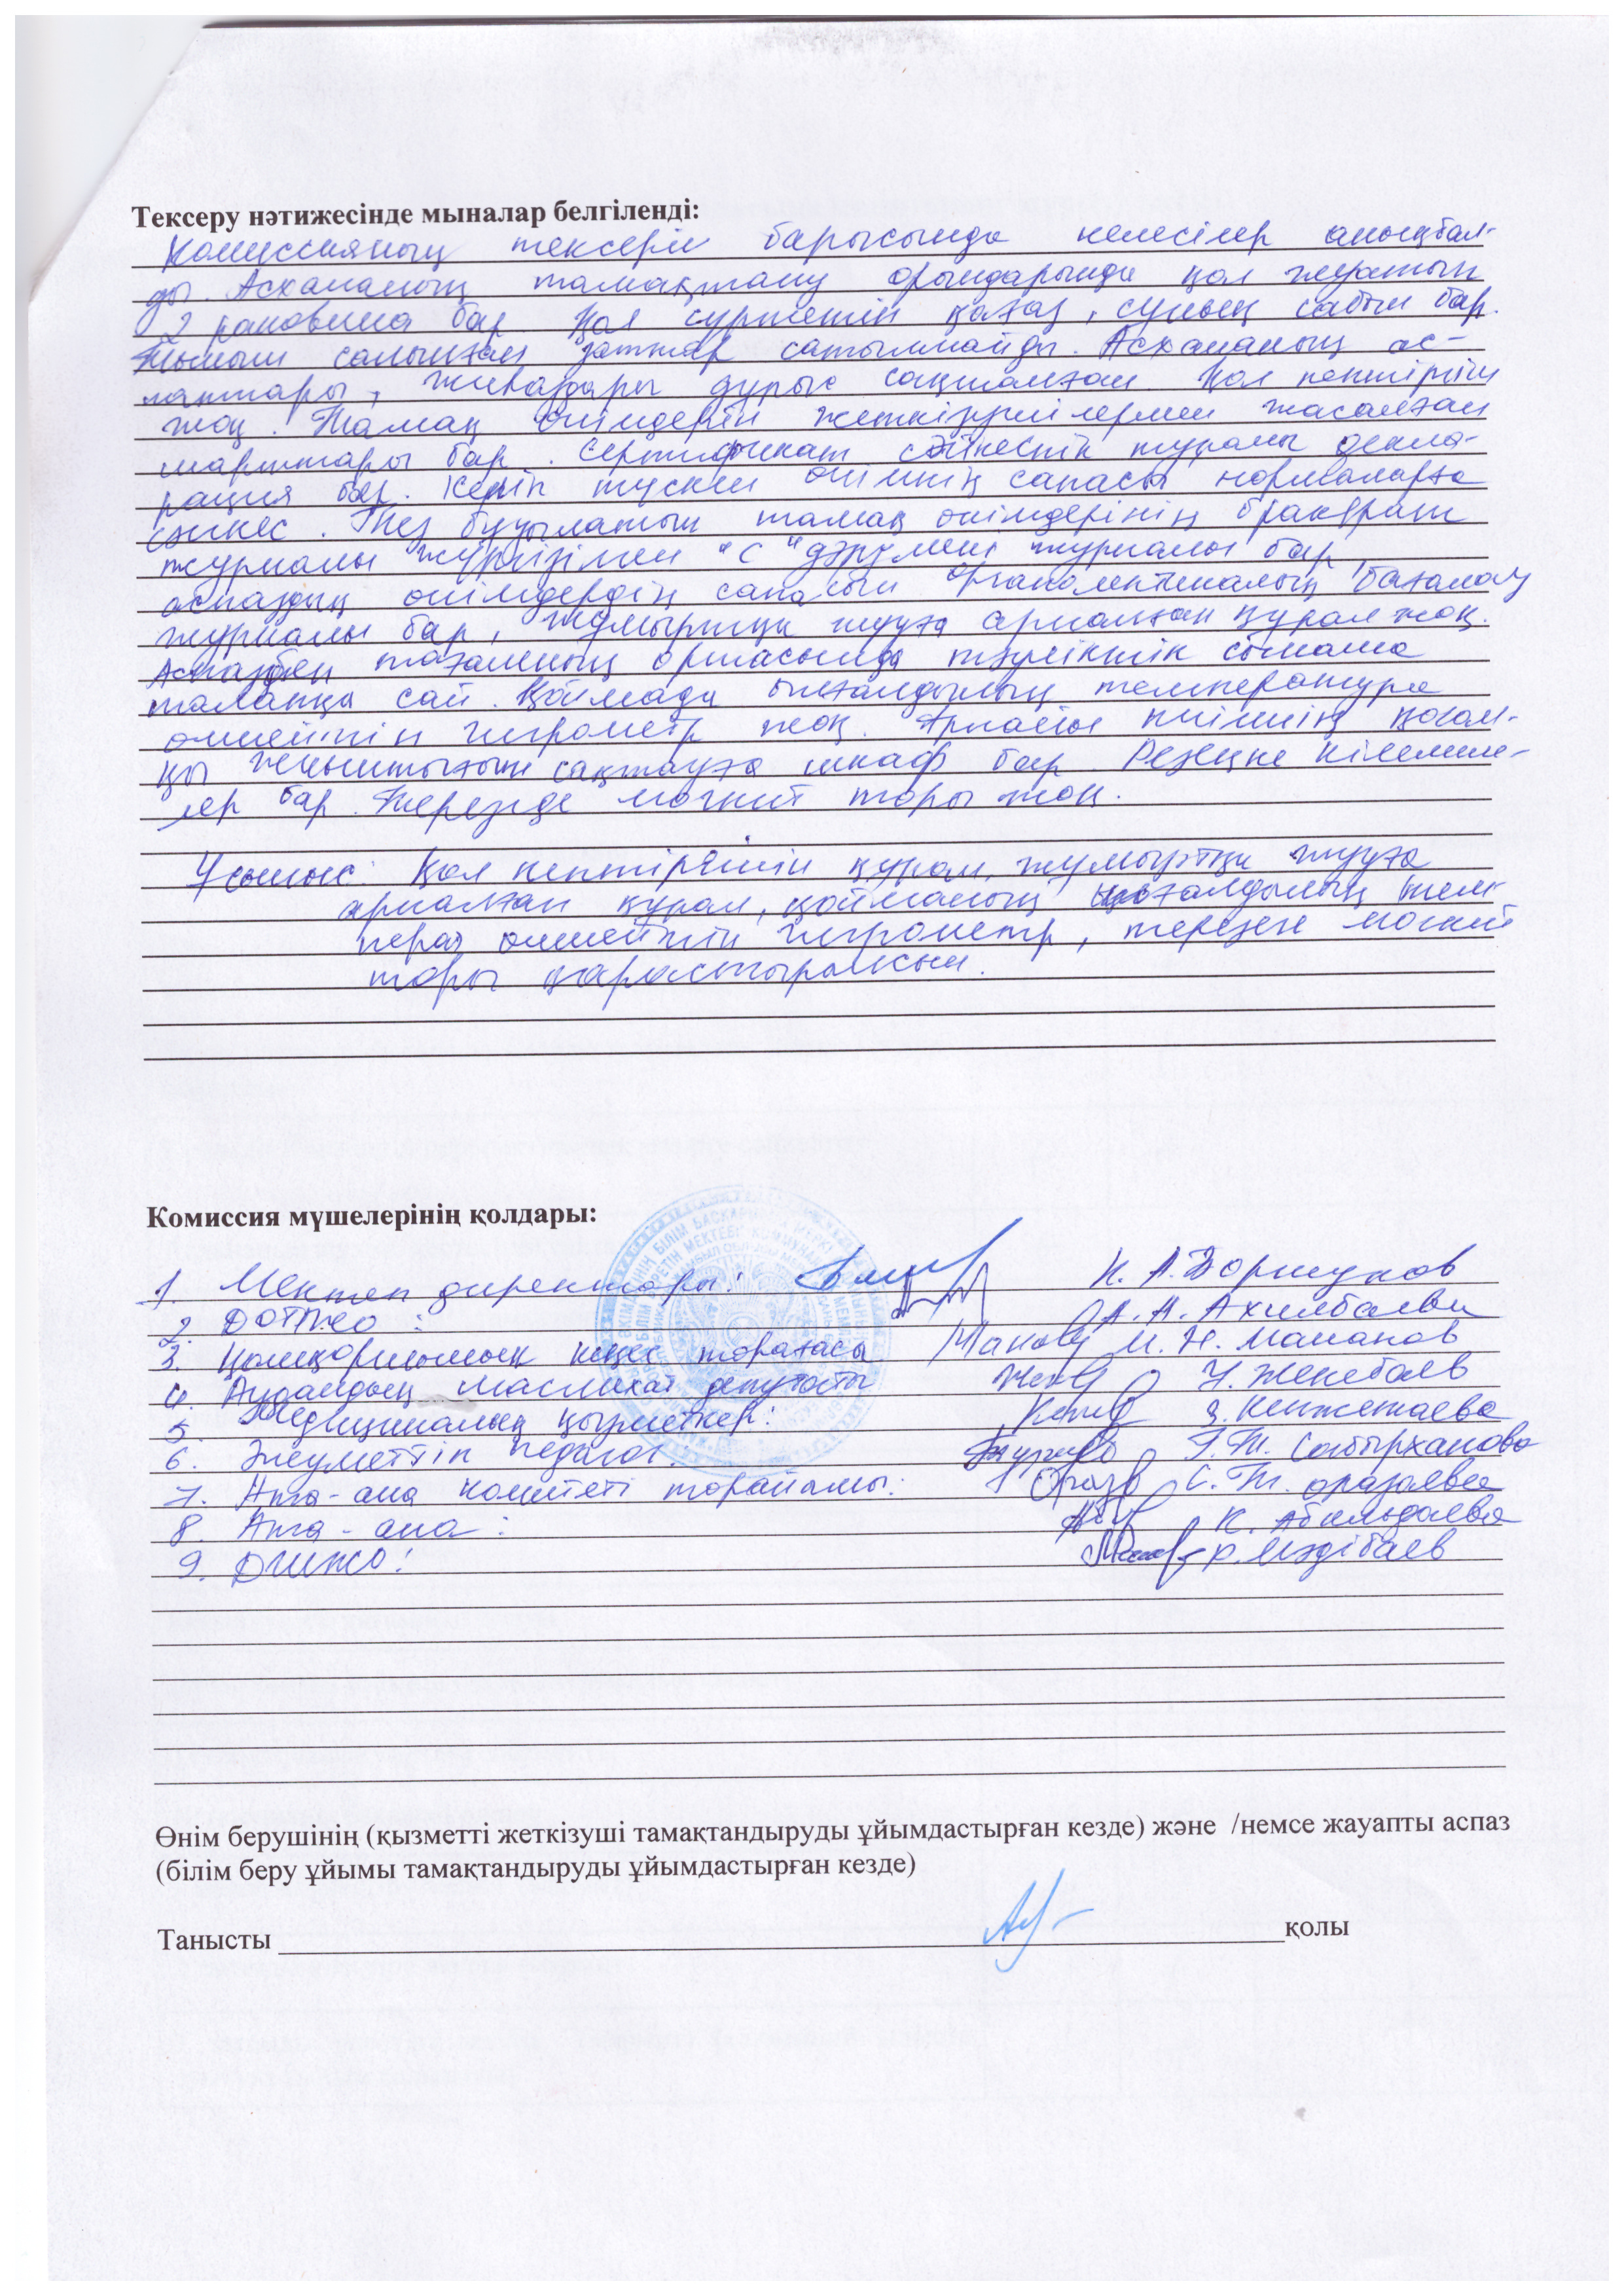 Тексеру нәтижесінде мыналар белгіленді:
Комиссияның тексеріп барысында келесілер анықтал-
ды. Асхананың тамақтану орындарында қол жуатын
2 раковина бар. Қол сүртетін қағаз, сұйық сабын бар.
Тыйым салынған заттар сатылмайды. Асхананың ас-
паптары, жиһаздары дұрыс сақталған. Қол кептіргіш
жоқ. Тамақ өнімдерін жеткізушілермен жасалған
шарттары бар. Сертификат сәйкестік туралы декла-
рация бар. Келіп түскен өнімнің сапасы нормаларға
сәйкес. Тез бұзылатын тамақ өнімдерінің бракераж
журналы жүргізілген "С" дәрумені журналы бар
аспаздық өнімдердің сапасын органолептикалық бағалау
журналы бар, жұмыртқа жууға арналған құрал жоқ.
Аспазбен тағамның ортасында тәуліктік сынама
талапқа сай. Қоймада ылғалдылық температура
өлшейтін гигрометр жоқ. Арнайы киімнің қосал-
қы жиынтығын сақтауға шкаф бар. Резеңке кілемше-
лер бар. Терезеде москит торы жоқ.
Ұсыныс: Қол кептіргішін құрал, жұмыртқа жууға
арналған құрал, қойманың ылғалдылық тем
перат өлшейтін гигрометр, терезеге москит
торы қарастырылсын.
Комиссия мүшелерінің қолдары:
1. Мектеп директоры: К. А. Боршуков
2. ДОТЖО: А. А. Ахилбаева
3. Қамқоршылық кеңес торағасы М. Н. Маманов
4. Ауданд​ық маслихат депутаты У. Женебаев
5. Медициналық қызметкер: З. Кенжетаева
6. Әлеуметтік педагог. Г. Т. Сабырханова
7. Ата-ана комитеті торайымы: С. Т. Оразаева
8. Ата-ана: К. Абильдаева
9. ДШЖО: Р. Мәдібаев
Өнім берушінің (қызметті жеткізуші тамақтандыруды ұйымдастырған кезде) және /немсе жауапты аспаз
(білім беру ұйымы тамақтандыруды ұйымдастырған кезде)
Танысты қолы